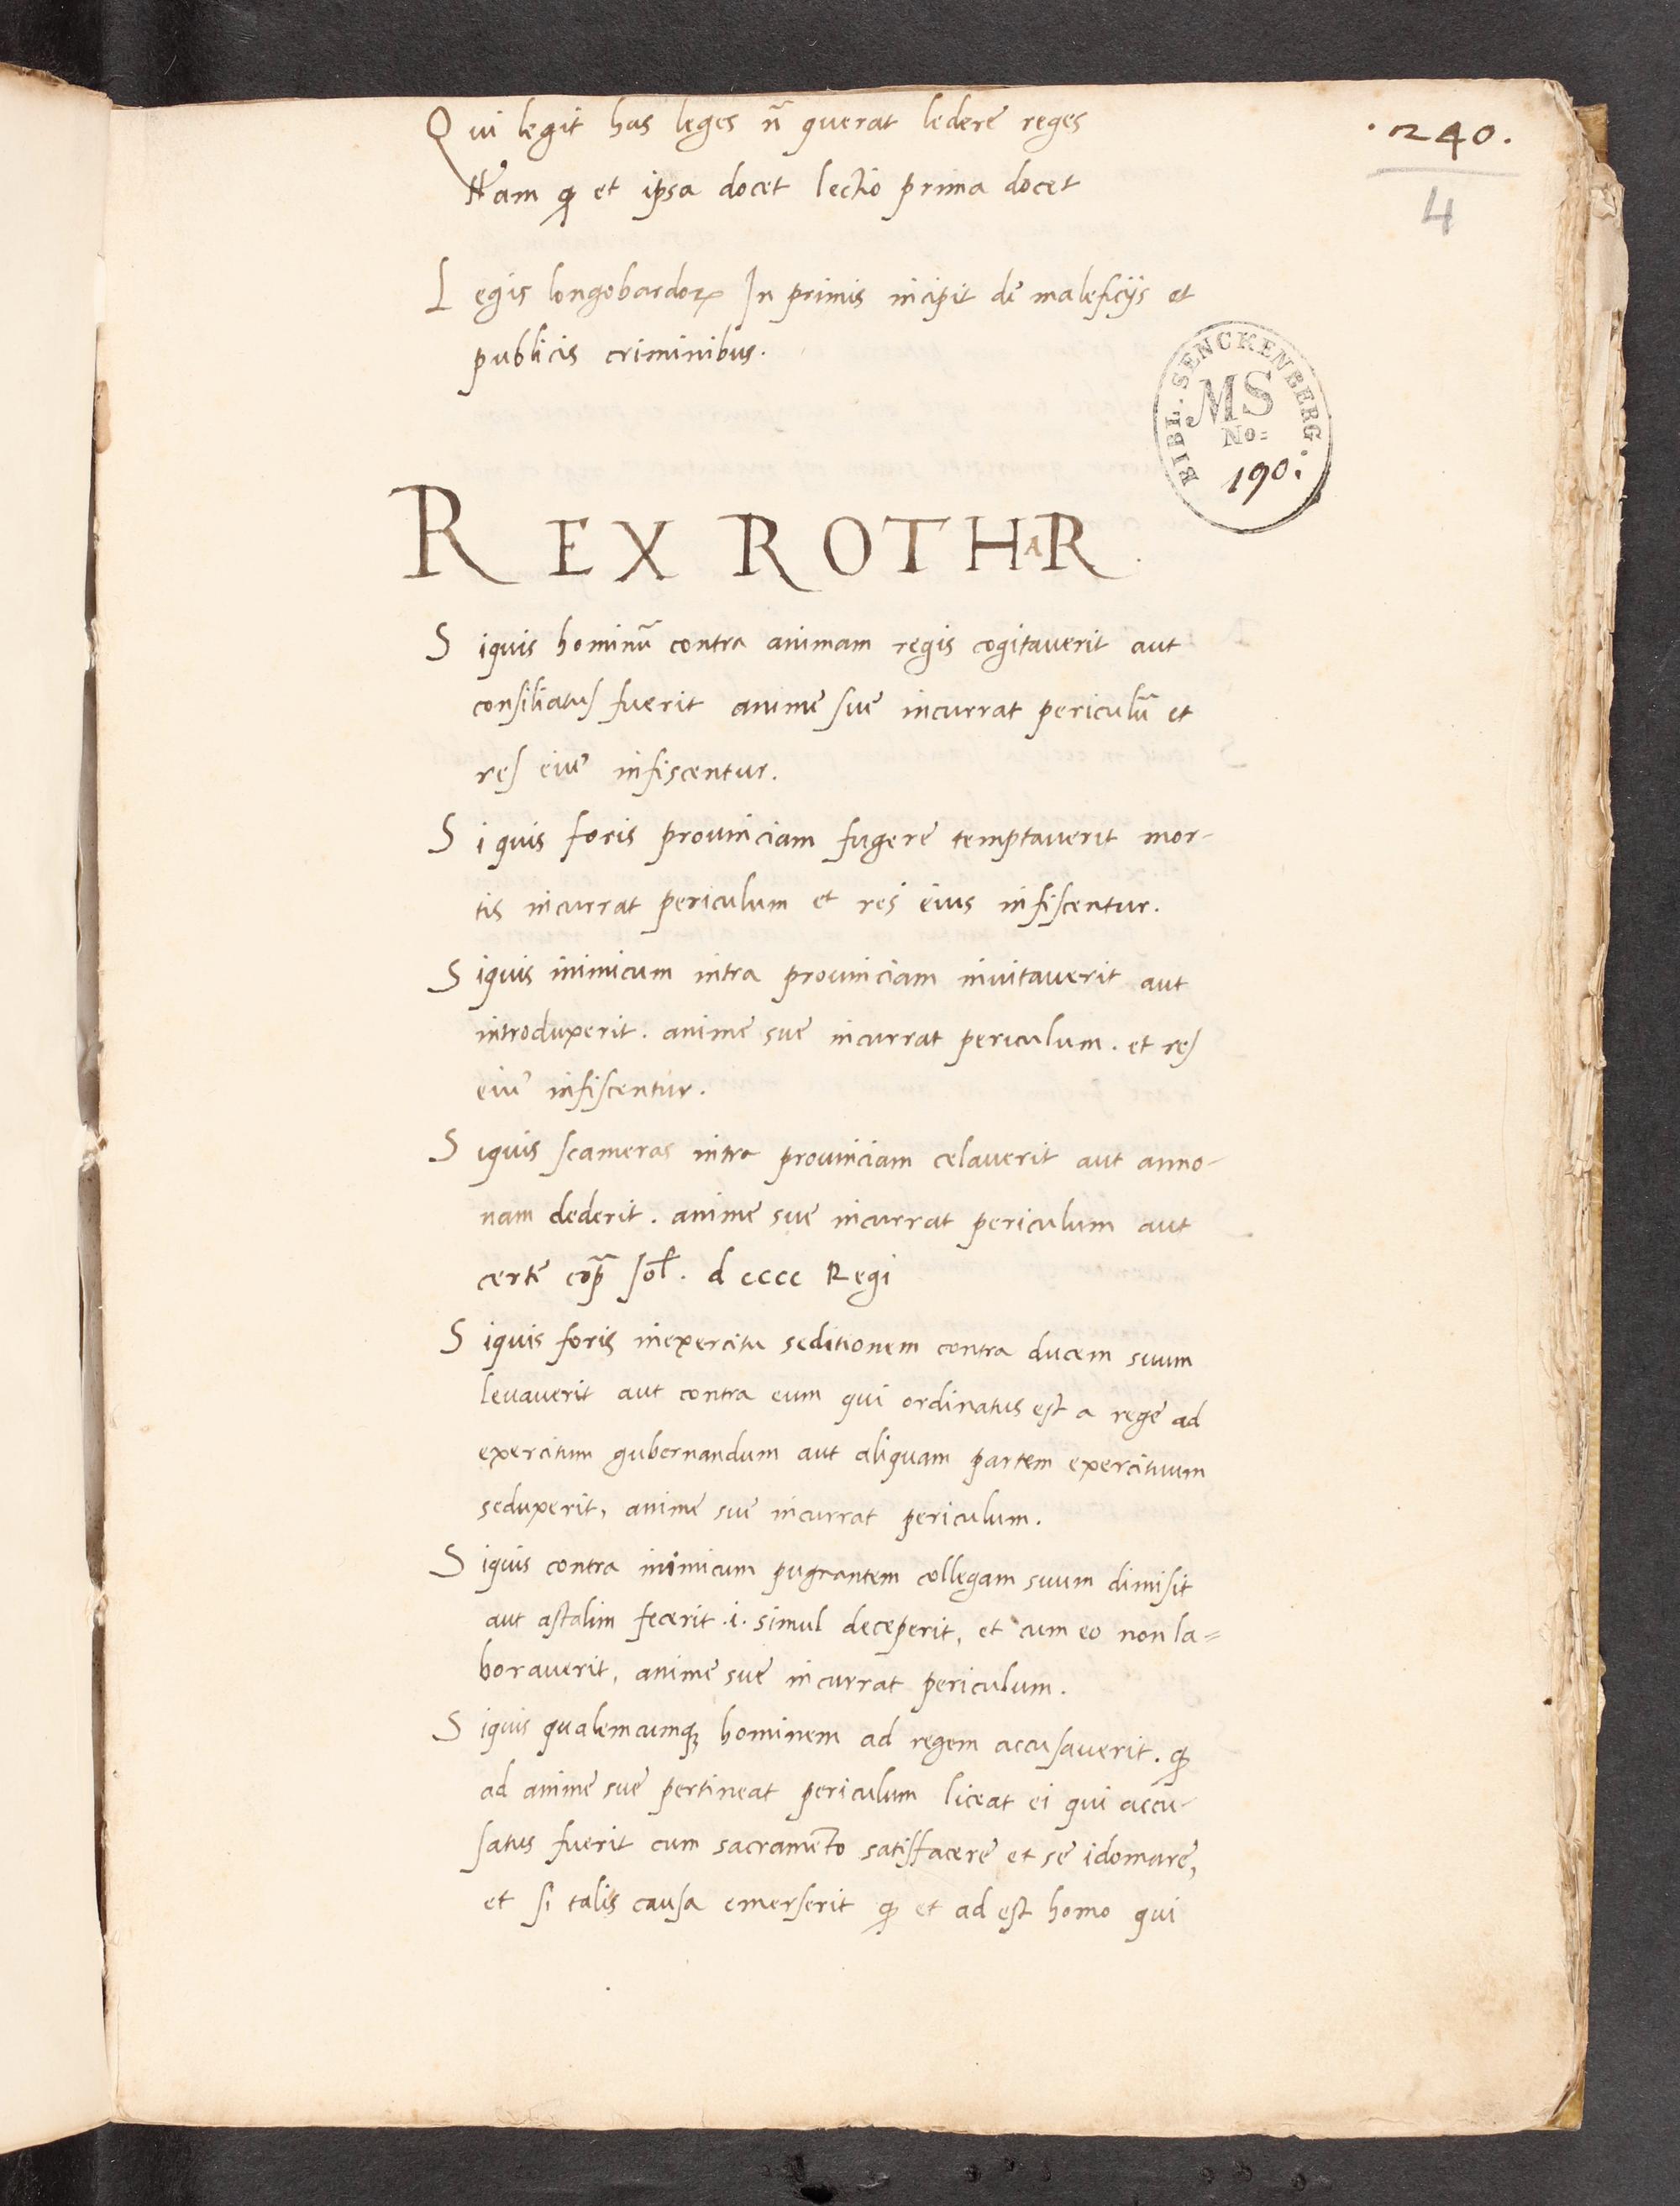 Qui legit has leges ñ querat ledere reges
.240.
Nam ꝙ et ipsa docet lectio prima docet
4
Legis longobardoꝝ In primis incipit de maleficijs et
publicis criminibus.
BIBL. SENCKENBERG.
MS
No=
190.
REX ROTHAR.
Siquis hominū contra animam regis cogitauerit aut
consiliatus fuerit anime sue incurrat periculū et
res eiuꝰ infiscentur.
Si quis foris prouinciam fugere temptauerit mor-
tis incurrat periculum et res eius infiscentur.
Siquis inimicum intra prouinciam inuitauerit aut
introduxerit. anime sue incurrat periculum. et res
eiuꝰ infiscentur.
Siquis scameras intra prouinciam celauerit aut anno-
nam dederit. anime sue incurrat periculum aut
certe cōp̄ sol̄. dcccc Regi
Siquis foris inexercitu seditionem contra ducem suum
leuauerit aut contra eum qui ordinatus est a rege ad
exercitum gubernandum aut aliquam partem exercituum
seduxerit, anime sue incurrat periculum.
Siquis contra inimicum pugnantem collegam suum dimisit
aut astalim fecerit .i. simul deceperit, et cum eo non la=
borauerit, anime sue incurrat periculum.
Siquis qualemcumqꝫ hominem ad regem accusauerit. ꝙ
ad anime sue pertineat periculum liceat ei qui accu-
satus fuerit cum sacramēto satisfacere et se idomare,
et si talis causa emerserit ꝙ et ad est homo qui